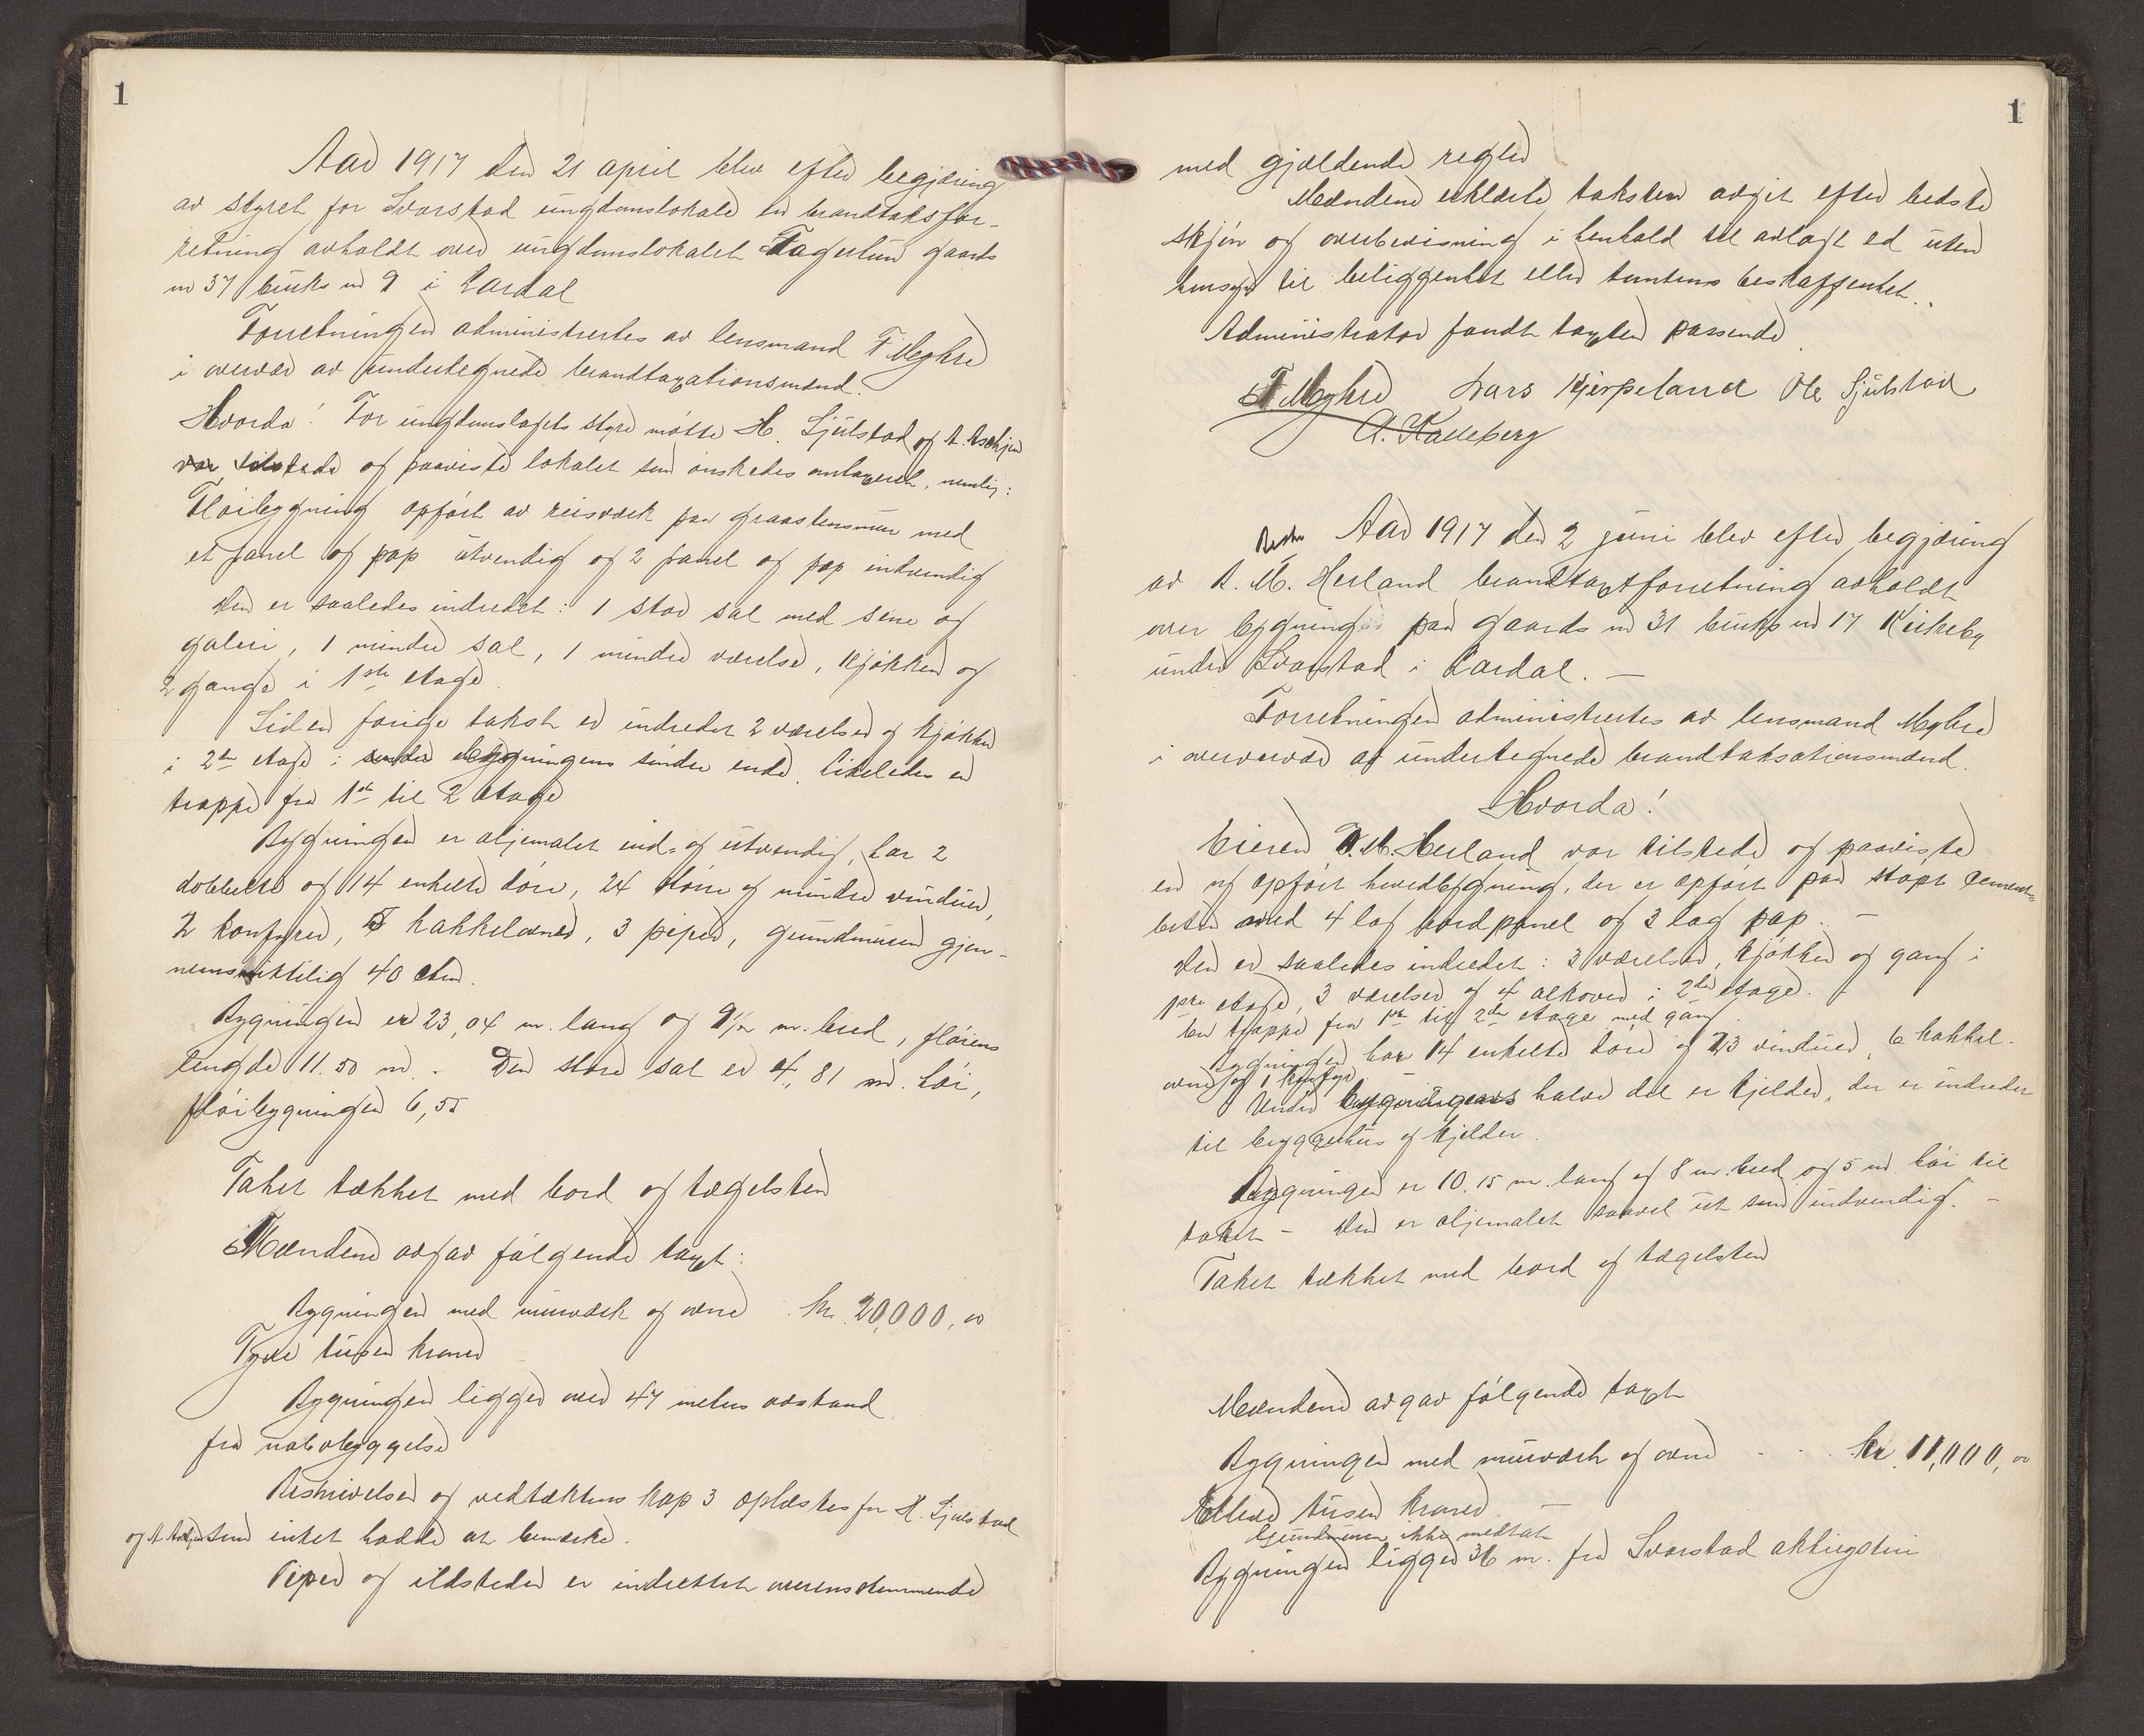 1
Aar 1917 den 21 april blev efter begjæring
av styret for Svarstad ungdomslokale en brandtaksfor-
retning avholdt over ungdomslokalet Fagerlun gaards
nr 37 bruks nr 9 i Lardal
Forretningen administrertes av lensmand F Myhre
i overvær av undertegnede brandtaxationsmænd.
Hvorda! For ungdomslagets styre møtte H. Sjulstad og A. Askjer
var tilstede og paaviste lokalet som ønskedes omtaxeret, nemlig:
Fløibygning opført av reisværk paa graastensmur med
et panel og pap utvendig og 2 panel og pap indvendig
den er saaledes indredet: 1 stor sal med sene og
galeri, 1 mindre sal, 1 mindre værelse, kjøkken og
2 gange i 1ste etage.
Siden forige takst er indredet 2 værelser og kjøkken
i 2den etage i søndre bygningens søndre ende. likeledes en
trappe fra 1ste til 2 etage
Bygningen er oljemalet ind- og utvendig, har 2
dobbelte og 14 enkelte døre, 24 større og mindre vinduer,
2 komfyrer, 5 kakkelovner, 3 piper, grundmuren gjen-
nemsnitlig 40 ctm.
Bygningen er 23,04 m. lang og 9 1/2 m. bred, fløiens
længde 11.50 m. Den store sal er 4,81 m. høi,
fløibygningen 6,55
Taket tækket med bord og tægelsten
Mændene avgav følgende taxt:
Bygningen med murværk og ovne kr. 20,000,00
Tyve tusen kroner
Bygningen ligger over 47 meters avstand
fra nabobyggelse
Beskrivelsen og vedtækternes kap 3 oplæstes for H. Sjulstad
og A. Askjer som intet hadde at bemerke.
Piper og ildsteder er indrettet overensstemmende
1
med gjældende regler
Mændene erklærte taksten avgit efter bedste
skjøn og overbevisning i henhold til avlagt ed uten
hensyn til beliggenhet eller tomtens beskaffenhet.
Administrator fandt taxten passende.
F Myhre Lars Kjerpeland Ole Sjulstad
A. Kalleberg
Aar 1917 den 2 juni blev efter begjæring
av A. M. Herland brandtaxtforretning avholdt
over bygning paa gaards nr 31 bruks nr 17 Kirkeby
under Svarstad i Lardal. —
Forretningen administrertes av lensmand Myhre
i overvær af undertegnede brandtaksationsmænd.
Hvorda!
Eieren A. M. Herland var tilstede og paaviste
en ny opført hovedbygning, der er opført paa støpt cement
beton med 4 lag bordpanel og 3 lag pap. —
Den er saaledes indredet: 3 værelser, kjøkken og gang i
1ste etage, 3 værelser og 4 alkover i 2den etage.
En trappe fra 1ste til 2den etage med gang.
Bygningen har 14 enkelte døre og 23 vinduer, 6 kakkel-
ovne og 1 komfyr
Under bygningens halve del er kjelder, der er indredet
til bryggehus og kjelder.
Bygningen er 10.15 m. lang og 8 m. bred og 5 m. høi til
taket - Den er oljemalet saavel ut som indvendig. —
Taket tækket med bord og tægelsten
Mændene avgav følgende taxt
Bygningen med murværk og ovne - - kr. 11,000,00
Elleve tusen kroner —
Grundmuren ikke medtat
Bygningen ligger 36 m. fra Svarstad aktiegysteri